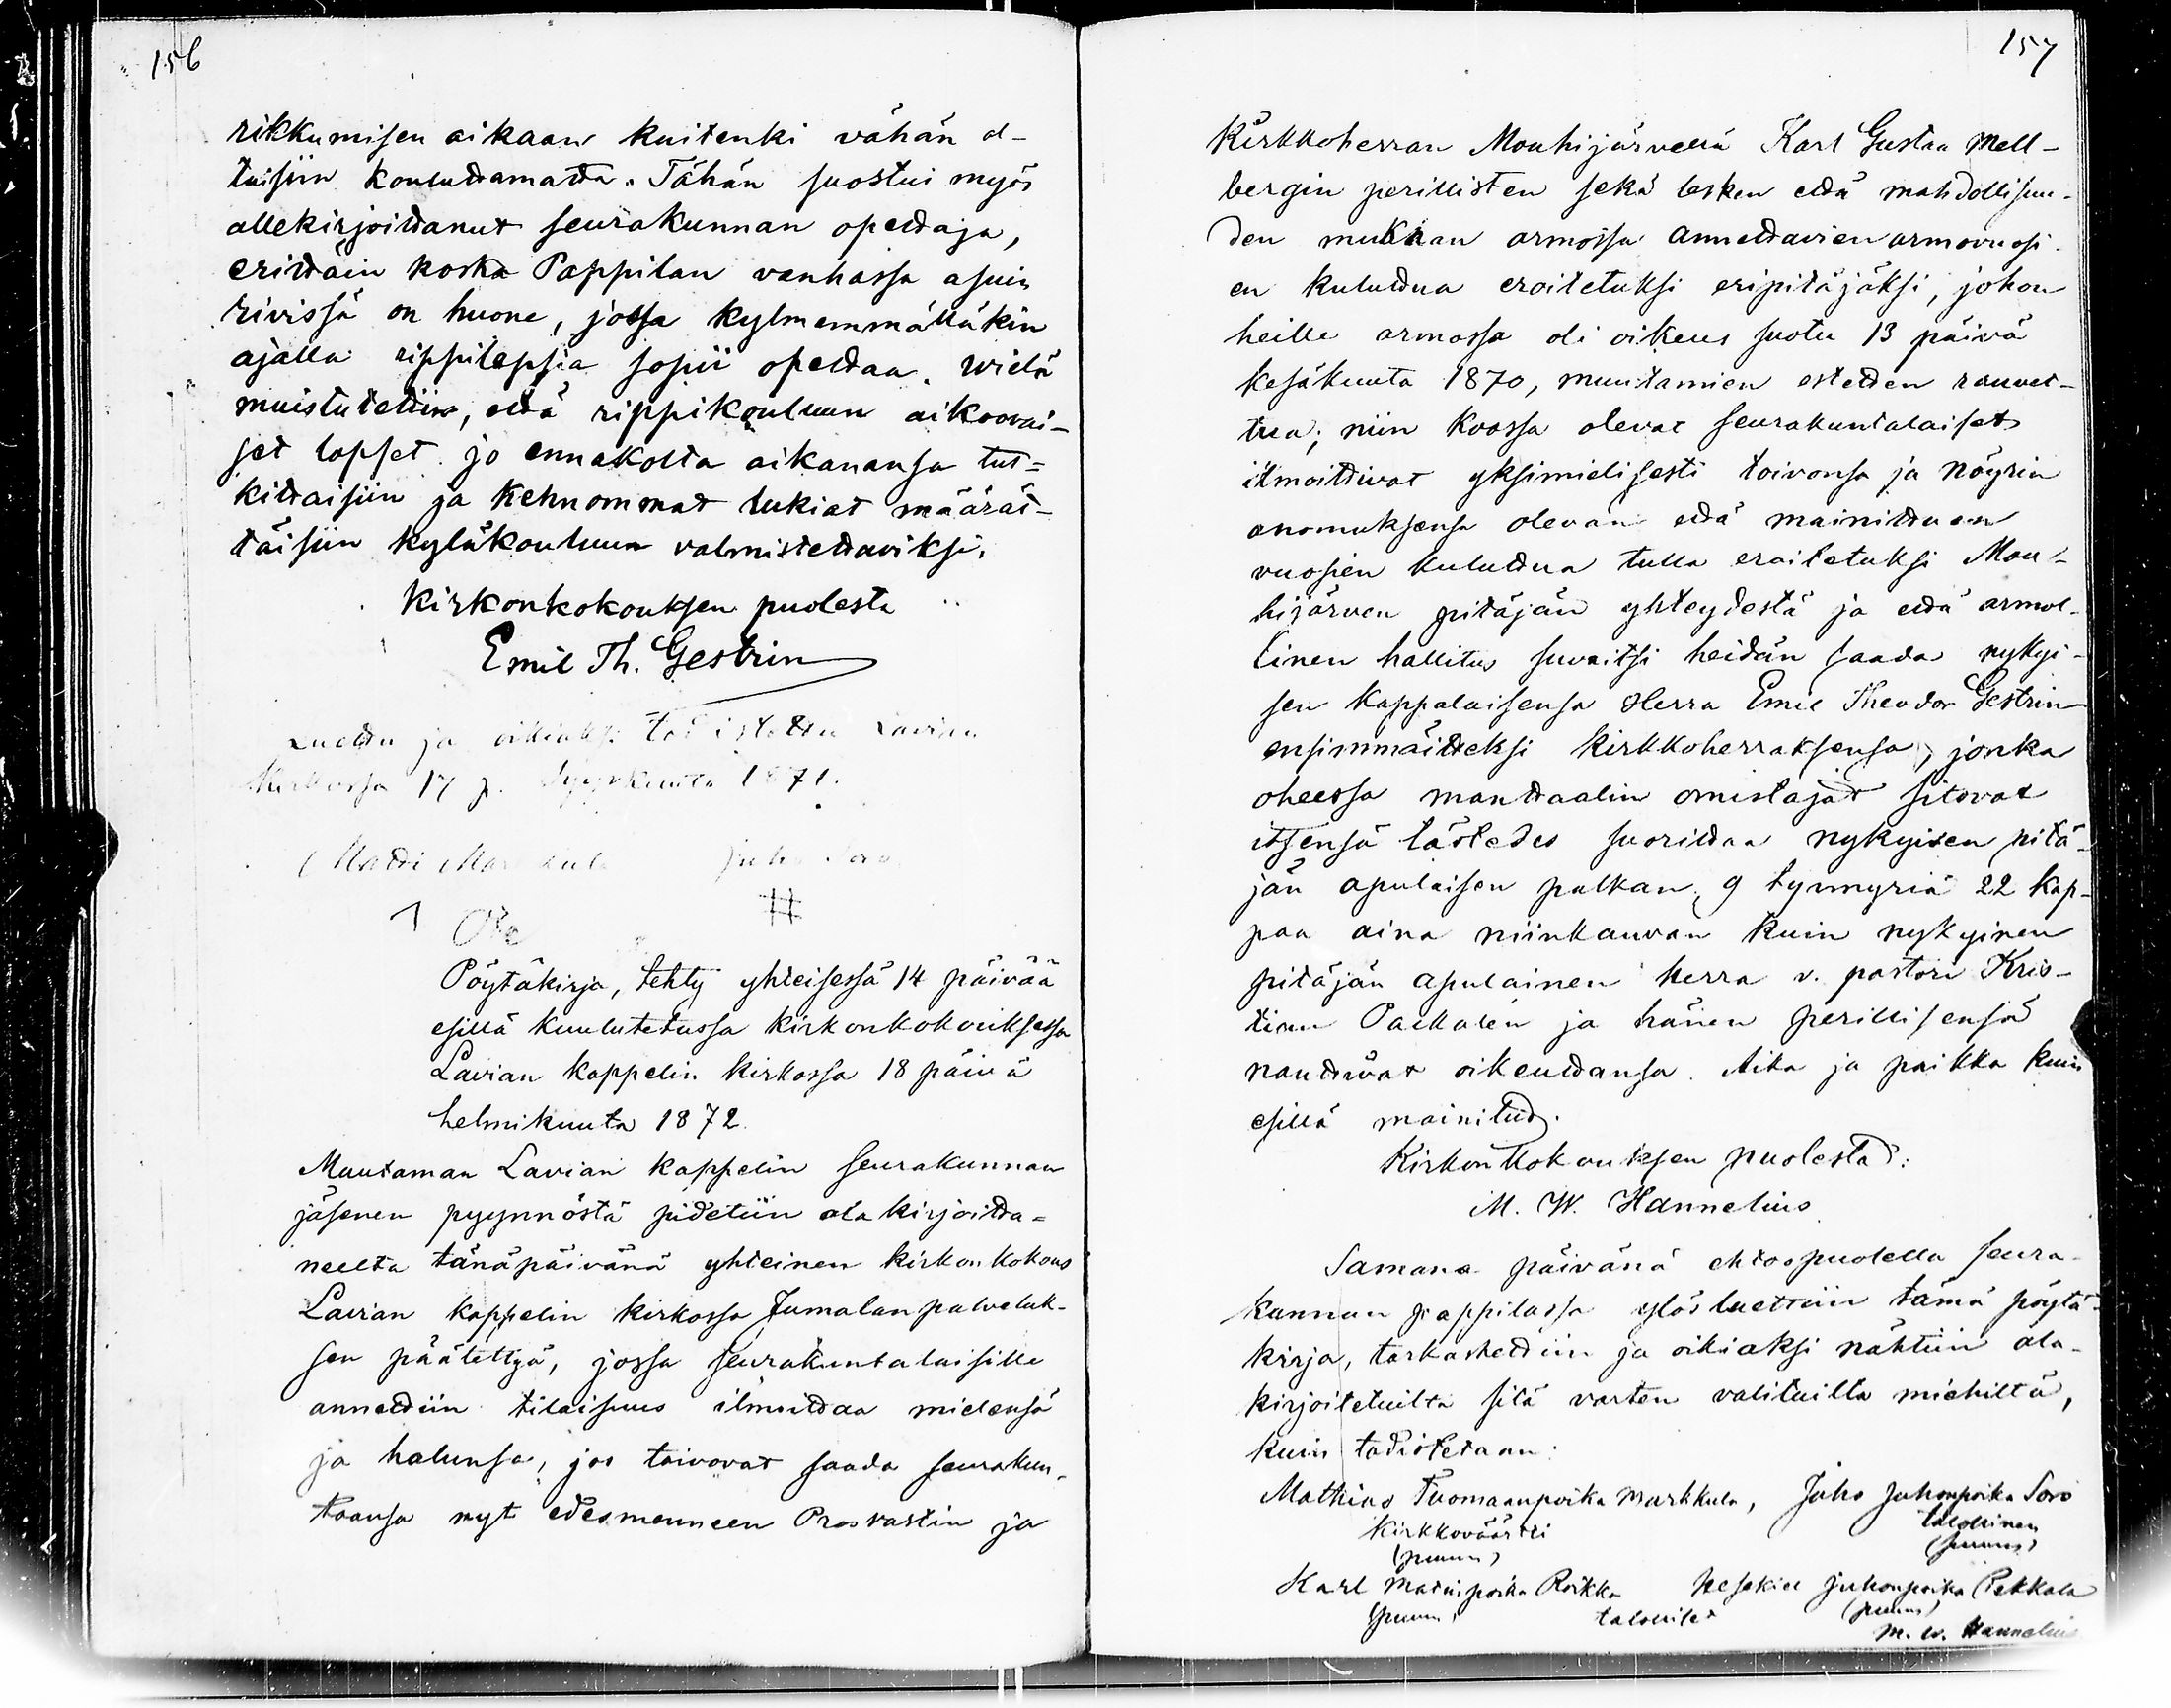 156
rikkumisen aikaan kuitenki vähän ol-
taisiin kouluttamatta. Tähän suostui myös
allekirjoittanut seurakunnan opettaja,
erittäin koska Pappilan vanhassa asuin
rivissä on huone, jossa kylmemmälläkin
ajalla rippilapsia sopii opettaa. Wielä
muistutettiin, että rippikouluun aikoovai-
set lapset jo ennakolta aikanansa tut-
kittaisiin ja kehnommat lukiat määrät-
täisiin kyläkouluun valmistettaviksi.
Kirkonkokouksen puolesta
Emil Th. Gestrin
Luettu ja oikiaksi todistettu Lavian
kirkossa 17 p. Syyskuuta 1871.
Matti Juho
Pöytäkirja, tehty yhteisessä 14 päivää
esillä kuulutetussa kirkonkokouksessa
Lavian kappelin kirkossa 18 päivä
helmikuuta 1872.
Muutaman Lavian kappelin seurakunnan
jäsenen pyynnöstä pidetiin alakirjoitta-
neelta tänäpäivänä yhteinen kirkonkokous
Lavian kappelin kirkossa Jumalanpalveluk-
sen päätettyä, jossa seurakuntalaisille
annettiin tilaisuus ilmoittaa mielensä
ja halunsa, jos toivovat saada seurakun-
taansa nyt edesmenneen Prosvastin ja
157
Kirkkoherran Mouhijärvellä Karl Gustaa Mell-
bergin perillisten sekä lesken että mahdollisuu-
den mukaan armossa annettavien armovuosi-
en kuluttua eroitetuksi eripitäjäksi, johon
heille armossa oli oikeus suotu 13 päivä
kesäkuuta 1870, muutamien estetten rauvet-
tua; niin koossa olevat seurakuntalaiset
ilmoittivat yksimielisesti toivonsa ja nöyrin
anomuksensa olevan että mainittuen
vuosien kuluttua tulla eroitetuksi Mou-
hijärven pitäjän yhteydestä ja että armol-
linen hallitus suvaitsi heidän saada nykyi-
sen kappalaisensa Herra Emil Theodor Gestrin
ensimmäiteksi kirkkoherraksensa, jonka
oheessa manttaalin omistajat sitovat
itsensä tästedes suorittaa nykyisen pitä-
jän apulaisen palkan, 9 tynnyriä 22 kap-
paa aina niinkauvan kuin nykyinen
pitäjän apulainen herra v. pastori Kris-
tian Packalén ja hänen perillisensä
nauttivat oikeuttansa. Aika ja paikka kuin
esillä mainitud.
Kirkonkokouksen puolestad:
M. W. Hannelius
Samana päivänä ehtoopuolella seura-
kunnan pappilassa ylösluettiin tämä pöytä-
kirja, tarkastettiin ja oikiaksi nähtiin ala-
kirjoitetuilta sitä varten valituilta miehiltä,
kuin todistetaan:
Mathias Tuomaanpoika Markkula, Juho Juhonpoika Soro
kirkkoväärti talollinen
(puum) (puum)
Karl Matinpoika Roikka Hesekiel Juhonpoika Pekkala
(puum) talolliset (puum)
M. W. Hannelius